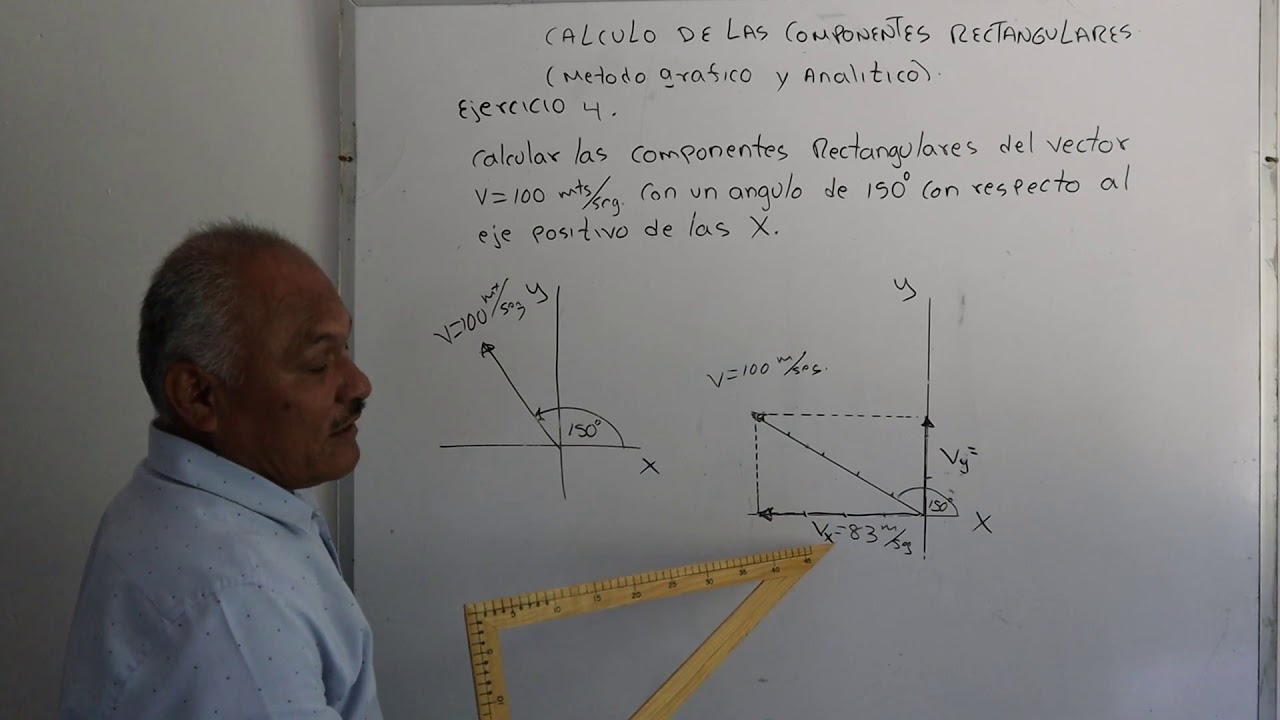 CALCULO DE LAS COMPONENTES RECTANGULARES
(Metodo grafico y Analitico).
Ejercicio 4.
Calcular las componentes Rectangulares del vector
V=100 mts/seg. con un angulo de 150° con respecto al
eje positivo de las X.
V=100 mt/seg
y
150°
X
y
V=100 m/seg.
Vy=
150°
X
Vx=83 m/sg
5 10 15 20 25 30 35 40 45